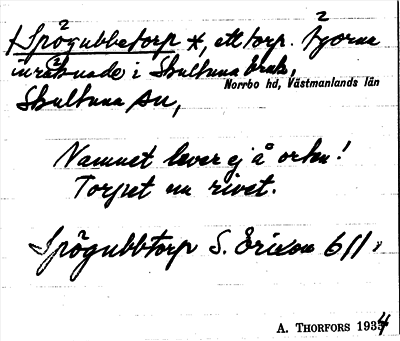 †Spögubbetorp *, ett torp.
inräknade i Skultuna bruk,
Norrbo hd, Västmanlands län
Skultuna sn,
Namnet lever ej å orten!
Torpet nu rivet.
Spögubbtorp S. Ericson 6/1
A. THORFORS 1934